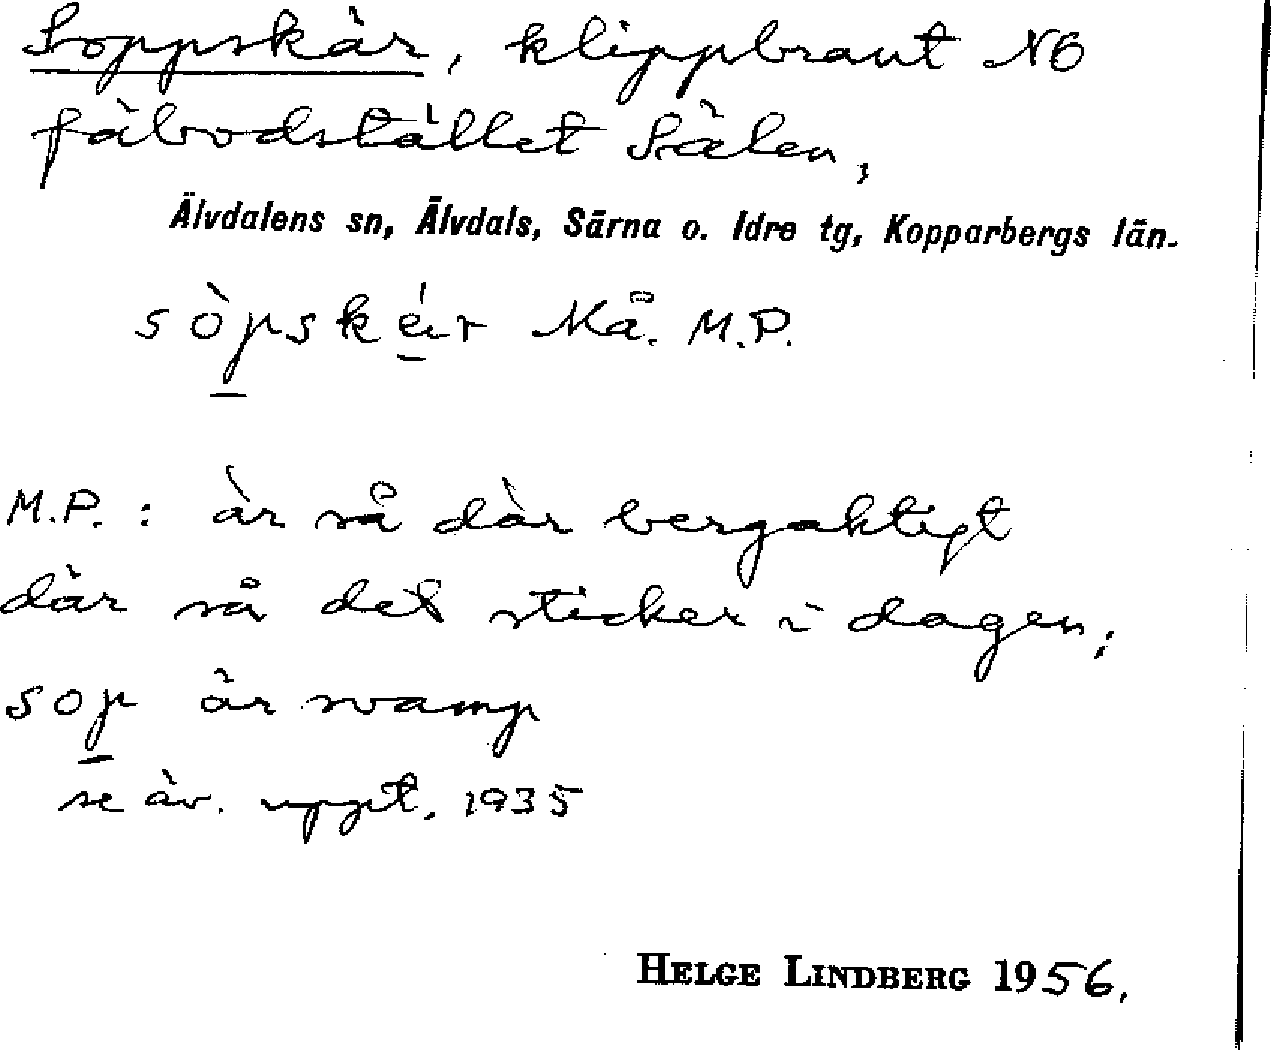 Soppskär, klippbrant NO
fäbodstället Sälen,
Älvdalens sn, Älvdals, Särna o. Idre tg, Kopparbergs län.
sòpskér Nå. M.P.
M.P. : är så där bergaktigt
där så det sticker i dagen;
sop är svamp
se äv. uppt. 1935
HELGE LINDBERG 1956.